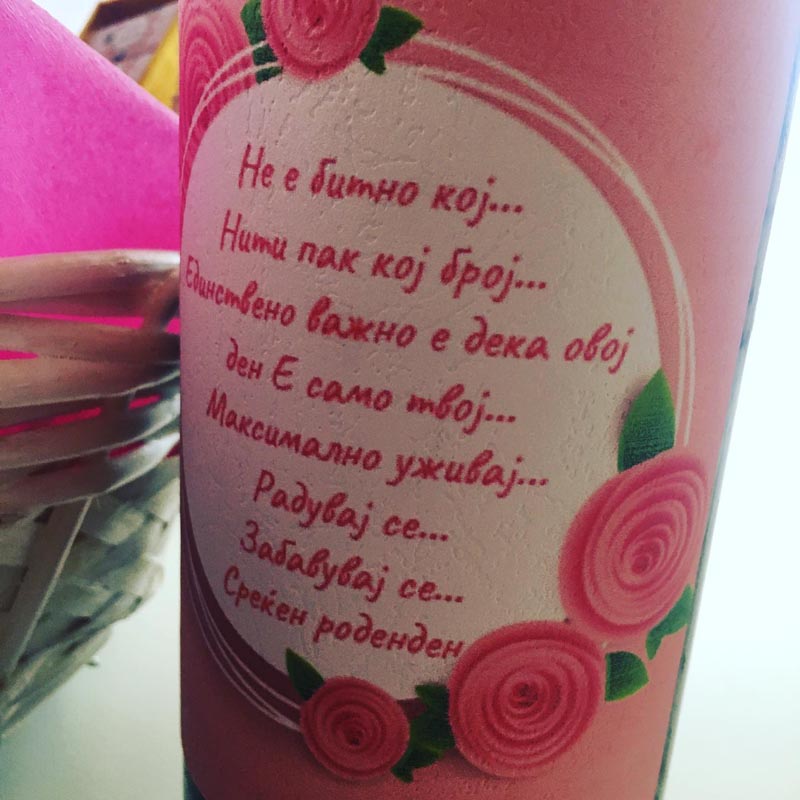 Не е битно кој...
Нити пак кој број...
Единствено важно е дека овој
ден Е само твој...
Максимално уживај...
Радувај се...
Забавувај се...
Среќен роденден